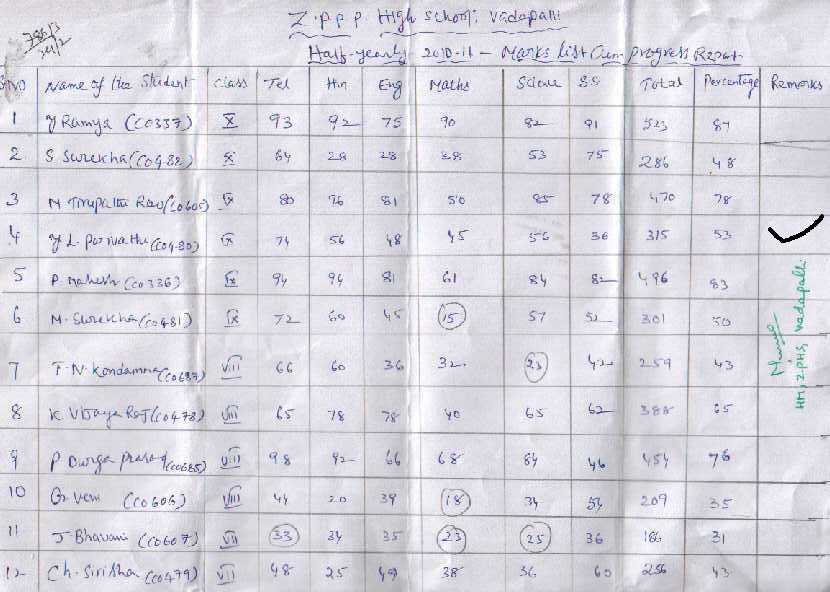 Z.P.P.P. High school, Vadapalli
Half-yearly 2010-11 - Marks List Cum progress Report
S.NO Name of the Student class Tel Hin Eng Maths Science S.S Total Percentage Remarks
1 Y Ramya (C0337) X 93 92 75 90 82 91 523 87
2 S Surekha (C0482) X 64 28 28 38 53 75 286 48
3 N Tirupathi Rao (C0605) IX 80 76 81 50 85 78 470 78
4 Y L. Parvathi (C0480) IX 74 56 48 45 56 36 315 53
5 P. Mahesh (C0336) IX 94 94 81 61 84 82 496 83
6 M. Surekha (C0481) IX 72 60 45 15 57 52 301 50
7 T. N. Kondamma VIII 66 60 36 32 23 42 259 43
8 K Vijaya Raj (C0478) VIII 65 78 78 40 65 62 388 65
9 P Durga prasad (C0685) VIII 98 92 66 68 84 46 454 76
10 G. Veni (C0606) VIII 44 20 39 18 34 54 209 35
11 J. Bhavani (C0607) VII 33 34 35 23 25 36 186 31
12 Ch. Sirisha (C0479) VII 48 25 49 38 36 60 256 43
HM, Z.PHS, Vadapalli